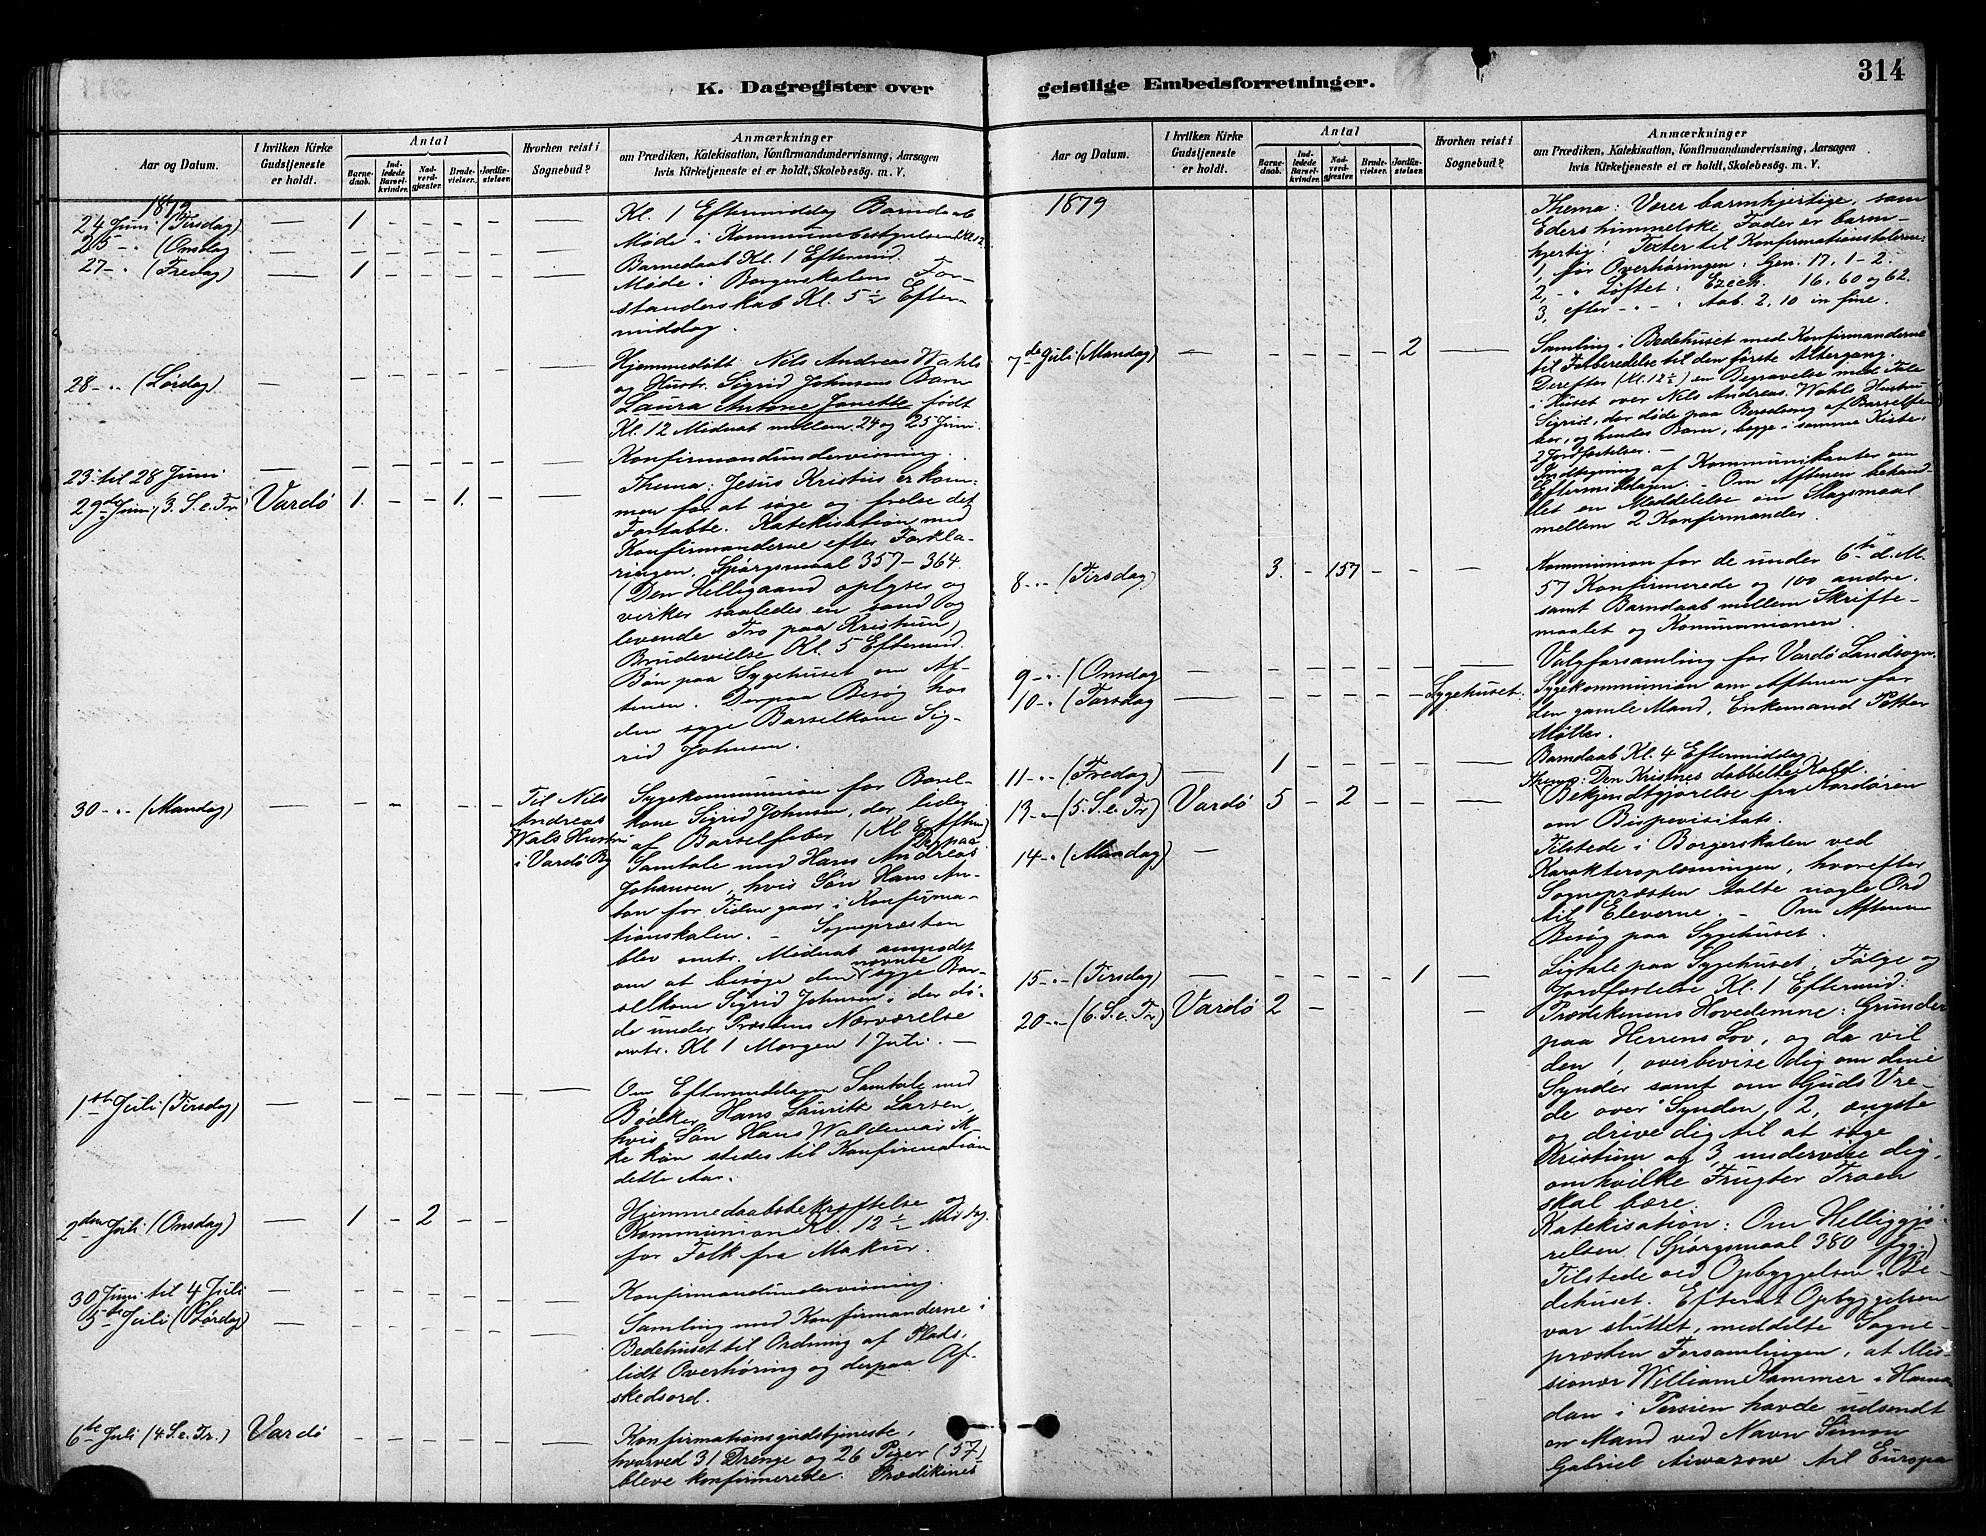 K. Dagregister over
Aar og Datum.
I hvilken Kirke
Gudstjeneste
er holdt.
Antal
Barne-
daab.
Ind-
ledede
Barsel-
kvinder.
Nad-
verd-
gjester.
Brude-
vielser.
Jordfæ-
stelser.
Hvorhen reist i
Sognebud?
Anmærkninger
om Prædiken, Katekisation, Konfirmandundervisning, Aarsagen
hvis Kirketjeneste ei er holdt, Skolebesøg. m. V.
1879
24 Juni (Tirsdag) — 1 — — — — Kl. 1 Eftermiddag Barndaab
25 - " (Onsdag — Møde i Kommunebestyrelsen Kl. 12
27 - " (Fredag) — 1 — — — — Barnedaab Kl. 1 Eftermid.
Møde i Borgerskolens For-
standerskab Kl. 5 ½ Efter-
middag.
28 - " (Lørdag) — Hjemmedøbt Nils Andreas Wahls
og Hustr. Sigrid Johnsens Barn
Laura Antone Janette født
Kl. 12 Midnat mellem 24 og 25 Juni.
23 til 28 Juni — Konfirmandundervisning.
29de Juni (3. S. e. Tr.) Vardö 1. - - 1. - — Thema: Jesus Kristus er kom-
men for at søge og frelse det
Fortabte. Katekisation med
Konfirmanderne efter Forkla-
ringen, Spørgsmaal 357 – 364.
(Den Helligaand oplyser og
virker saaledes en sand og
levende Tro paa Kristum)
Brudevielse Kl. 5 Eftermid.
Bøn paa Sygehuset om Af-
tenen. Derpaa Besøg hos
den syge Barselkone Sig-
rid Johnsen.
30 - " (Mandag) — Til Nils
Andreas
Wals Hustru
i Vardö By
Sygekommunion for Barsel-
kone Sigrid Johnsen, der lider
af Barselfeber (Kl. 6 Aften)
Derpaa
Samtale med Hans Andreas
Johansen, hvis Søn Hans An-
ton for Tiden gaar i Konfirma-
tionsskolen. — Sognepræsten
blev omtr. Midnat anmodet
om at besøge den nævnte syge Bar-
selkone Sigrid Johnsen, der dø-
de under Præstens Nærværelse
omtr. Kl 1 Morgen 1 Juli. —
1ste Juli (Tirsdag) — Om Eftermiddagen Samtale med
Bødker Hans Lauritz Larsen,
hvis Søn Hans Waldemar ik-
ke kan stedes til Konfirmation
dette Aar.
2den Juli (Onsdag) — 1 - 2 - - Hjemmedaabsbekræftelse og
Kommunion Kl. 12 ½ Middag.
for Folk fra Makur.
30 Juni til 4 Juli — Konfirmandundervisning.
5te Juli (Lørdag) — Samling med Konfirmanderne i
Bedehuset til Ordning af Plads,
lidt Overhøring og derpaa Af-
skedsord.
6te Juli (4. S. e. Tr.) Vardö — Konfirmationsgudstjeneste,
hvorved 31 Drenge og 26 Piger (57)
bleve konfirmerede. Prædikenes
geistlige Embedsforretninger.
314
Aar og Datum.
I hvilken Kirke
Gudstjeneste
er holdt.
Antal
Barne-
daab.
Ind-
ledede
Barsel-
kvinder.
Nad-
verd-
gjester.
Brude-
vielser.
Jordfæ-
stelser.
Hvorhen reist i
Sognebud?
Anmærkninger
om Prædiken, Katekisation, Konfirmandundervisning, Aarsagen
hvis Kirketjeneste ei er holdt, Skolebesøg. m. V.
1879
Thema: Værer barmhjertige, som
Eders himmelske Fader er barm-
hjertig! Texter til Konfirmationstalerne:
1, før Overhøringen: Gen. 17. 1-2.
2, - " Løftet: Ezech. 16. 60 og 62.
3, efter - " - Aab. 2, 10 in fine.
7de Juli (Mandag) — - - - - 2 — Samling i Bedehuset med Konfirmanderne
til Forberedelse til den første Altergang.
Derefter (Kl. 12 ½) en Begravelse med Tale
i Huset over Nils Andreas Wahls Hustru
Sigrid, der døde paa af Barselfe-
ber, og hendes Barn, begge i samme Kiste.
2 Jordfæstelser. —
Indtegning af Kommunikanter om
Eftermiddagen. — Om Aftenen behand-
let en Meddelelse om Slagsmaal
mellem 2 Konfirmander.
8 - " (Tirsdag) 3. - 157 - - — Kommunion for de under 6te d. M.
57 Konfirmerede og 100 andre.
samt Barndaab mellem Skrifte-
maalet og Kommunionen.
9 - " (Onsdag — Valgforsamling for Vardö Landsogn.
10 - " (Torsdag — Sygehuset. Sygekommunion om Aftenen for
den gamle Mand, Enkemand Petter
Møller.
11 - " (Fredag) — 1 — Barndaab Kl. 4 Eftermiddag.
13 - " (5. S. e. Tr) Vardö 5 - 2 - - — Thema: Den Kristnes dobbelte Kald.
Bekjendtgjørelse fra Kordören
om Bispevisitats.
14 - " (Mandag) — Tilstede i Borgerskolen ved
Karakteroplæsningen, hvorefter
Sognepræsten talte nogle Ord
til Eleverne. — Om Aftenen
Besøg paa Sygehuset.
15 - " (Tirsdag) — - - - - 1 — Ligtale paa Sygehuset, Følge og
Jordfæstelse Kl. 1 Eftermid:
20 - " (6. S. e. Tr) Vardö 2 - — Prædikenens Hovedemne: Grunder
paa Herrens Lov, og da vil
den 1, overbevise dig om dine
Synder samt om Guds Vre-
de over Synden, 2, ængste
og drive dig til at søge
Kristum og 3, undervise dig,
om hvilke Frugter Troen
skal bære.
Katekisation: Om Helliggjø-
relsen (Spørgsmaal 380 fgg.)
Tilstede ved Opbyggelsen i Be-
dehuset. Efterat Opbyggelsen
var sluttet, meddelte Sogne-
præsten Forsamlingen, at Mis-
sionær William Hammer i Hama-
dan i Persien havde udsendt
en Mand ved Navn Simon
Gabriel Aiwazow til Europa